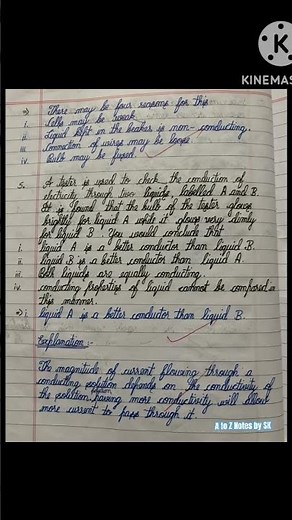 K
KINEMAS
⇒ There may be four reasons for this
i. Cells may be weak.
ii. Liquid kept in the beaker is non-conducting.
iii. Connection of wires may be loose
iv. Bulb may be fused.
5. A tester is used to check the conduction of
electricity through two liquids labelled A and B.
It is found that the bulb of the tester glows
brightly for liquid A while it glows very dimly
for liquid B. You would conclude that
i. liquid A is a better conductor than liquid B.
ii. liquid B is a better conductor than liquid A.
iii. Both liquids are equally conducting.
iv. conducting properties of liquid cannot be compared in
this manner.
⇒ i. liquid A is a better conductor than liquid B.
Explanation :-
The magnitude of current flowing through a
conducting solution depends on the conductivity of
the solution having more conductivity will allow
more current to pass through it
A to Z Notes by SK